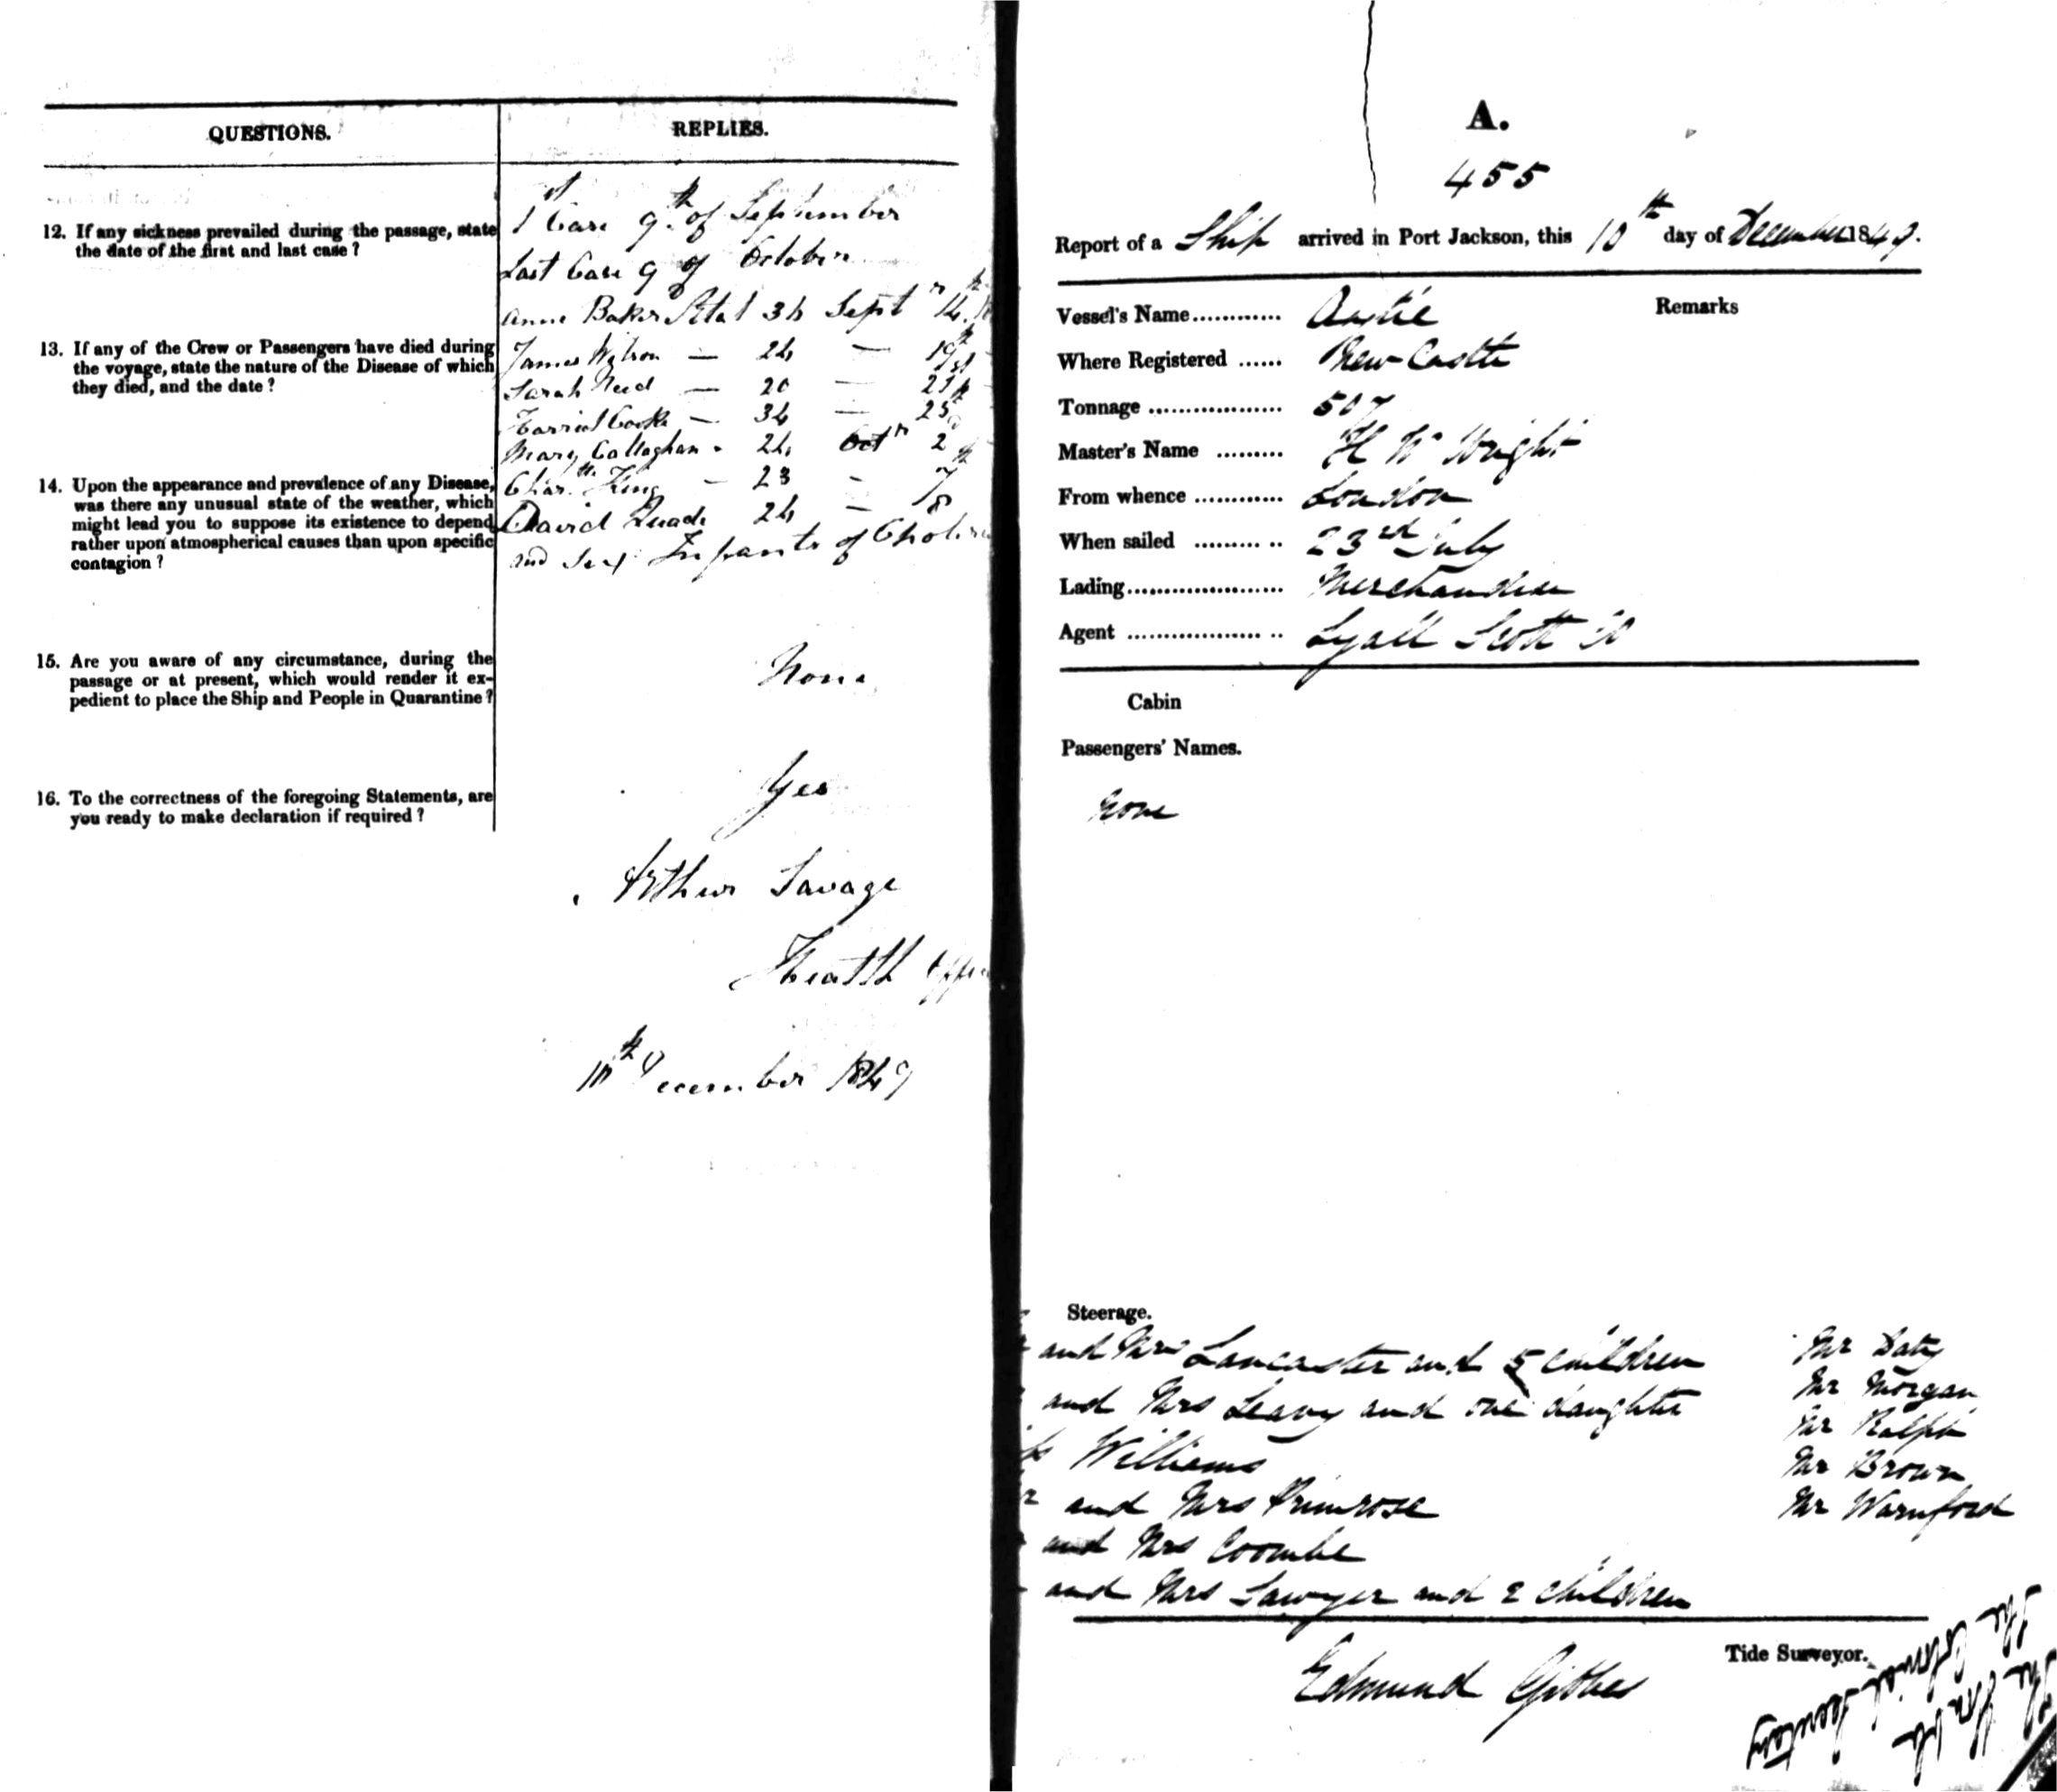 QUESTIONS.
REPLIES.
12. If any sickness prevailed during the passage, state
the date of the first and last case ?
1st Case 9th of September
Last Case 9 of October
13. If any of the Crew or Passengers have died during
the voyage, state the nature of the Disease of which
they died, and the date ?
Anne Baker Ætat 34 Septr 14th
James Watson — 24 — 19th
Sarah Reed — 20 — 21st
Harriet Cooke — 34 — 25th
Mary Callaghan - 24 Octr 2d
14. Upon the appearance and prevalence of any Disease,
was there any unusual state of the weather, which
might lead you to suppose its existence to depend
rather upon atmospherical causes than upon specific
contagion ?
King - 23 - 7th
David 24 — 8
and six Infants of
15. Are you aware of any circumstance, during the
passage or at present, which would render it ex-
pedient to place the Ship and People in Quarantine ?
None
16. To the correctness of the foregoing Statements, are
you ready to make declaration if required ?
Yes
Arthur Savage
Health
10th December 1849
A.
455
Report of a Ship arrived in Port Jackson, this 10th day of December 1849.
Vessel's Name............
Remarks
Where Registered ...... New Castle
Tonnage .................. 507
Master's Name ......... H Wright
From whence ............ London
When sailed ......... .. 23rd July
Lading..................... Merchandise
Agent .................. .. Lyall Scott Co
Cabin
Passengers' Names.
None
Steerage.
and Mrs Lancaster and 5 children
and Mrs Leavy and one daughter
Williams
and Mrs Primrose
and Mrs Coombe
and Mrs Sawyer and 2 children
Mr Daty
Mr Morgan
Mr Ralph
Mr Brown
Mr Warnford
Tide Surveyor.
Edmund Gibbes
The Colonial Secretary